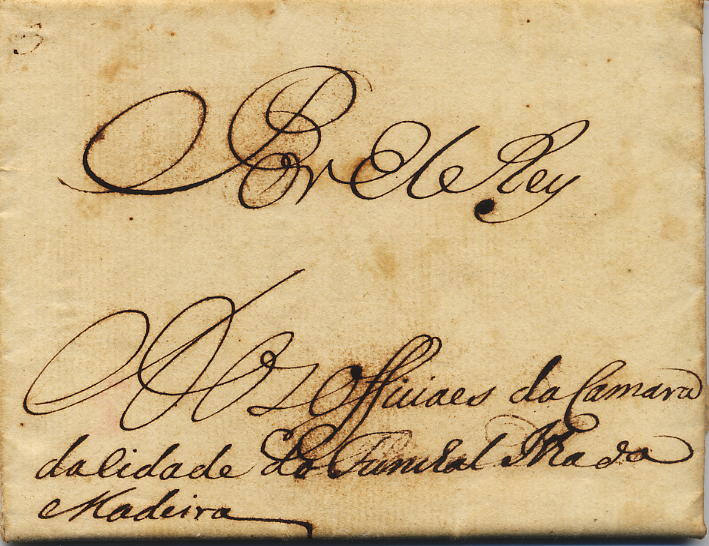 Por El Rey
Aos Officiaes da Camara
da Cidade do Funchal Ilha da
Madeira